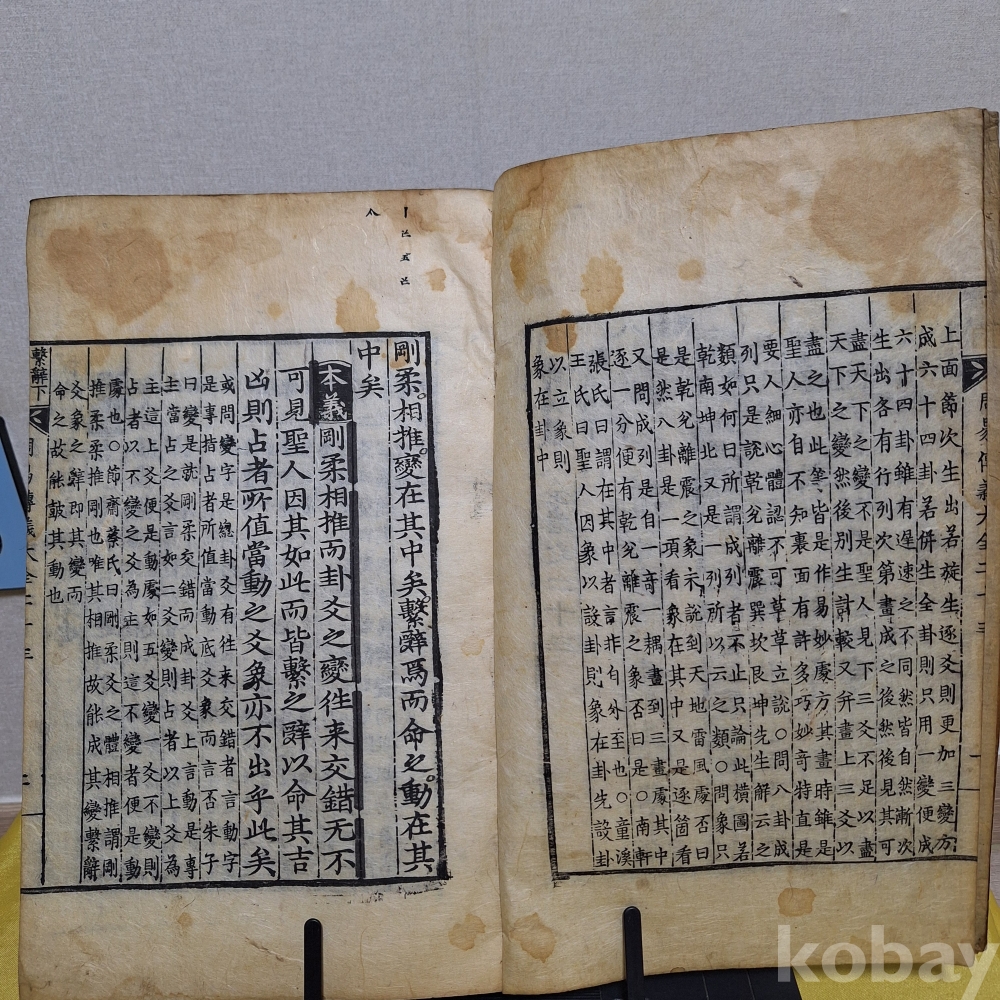 上面節次生出若旋生逐爻則更加三變方
成六十四卦若併生全卦則只用一變便成
六十四卦雖有遲速之不同然皆自然漸次
生出各有行列次第畫成之後然後見其可
盡天下之變不是聖人見下三爻不足以盡
天下之變然後別生計較又并畫上三爻以
盡之也此等皆是作易妙處方其畫時雖是
聖人亦自不知裏面有許多巧妙奇特直是
要人細心體認不可草草立說○問八卦成
列只是說乾兌離震巽坎艮坤先生解云之
類如何曰所謂成列者不止只論此橫圖若
乾南坤北又是一列所以云之類○問象只
是乾兌離震之象未說到天地雷風處否曰
是然八卦是一項看象在其中又是逐箇看
又問成列是自一奇一耦畫到三畫處其中
逐一分便有乾兌離震之象否曰是○南軒
張氏曰謂在其中者言非自外至也○童溪
王氏曰聖人因象以設卦則象在卦先設卦
以立象則
象在卦中
周易傳義大全二十三 一
剛柔相推變在其中矣繫辭焉而命之動在其
中矣
本義 剛柔相推而卦爻之變往來交錯無不
可見聖人因其如此而皆繫之辭以命其吉
凶則占者所值當動之爻象亦不出乎此矣
或問變字是總卦爻有往來交錯者言動字
是專指占者所值當動底爻象而言否朱子
曰變是就剛柔交錯而成卦爻上言動是專
主當占之爻言如二爻變則占者以上爻為
主這上爻便是動處如五爻變一爻不變則
占者以不變之爻為主則這不變者便是動
處也○節齋蔡氏曰剛柔爻之體相推謂剛
推柔柔推剛也唯其相推故能成其變繫辭
爻象之辭即其變而
命之故能鼓其動也
繫辭下 周易傳義大全二十三 二
kobay